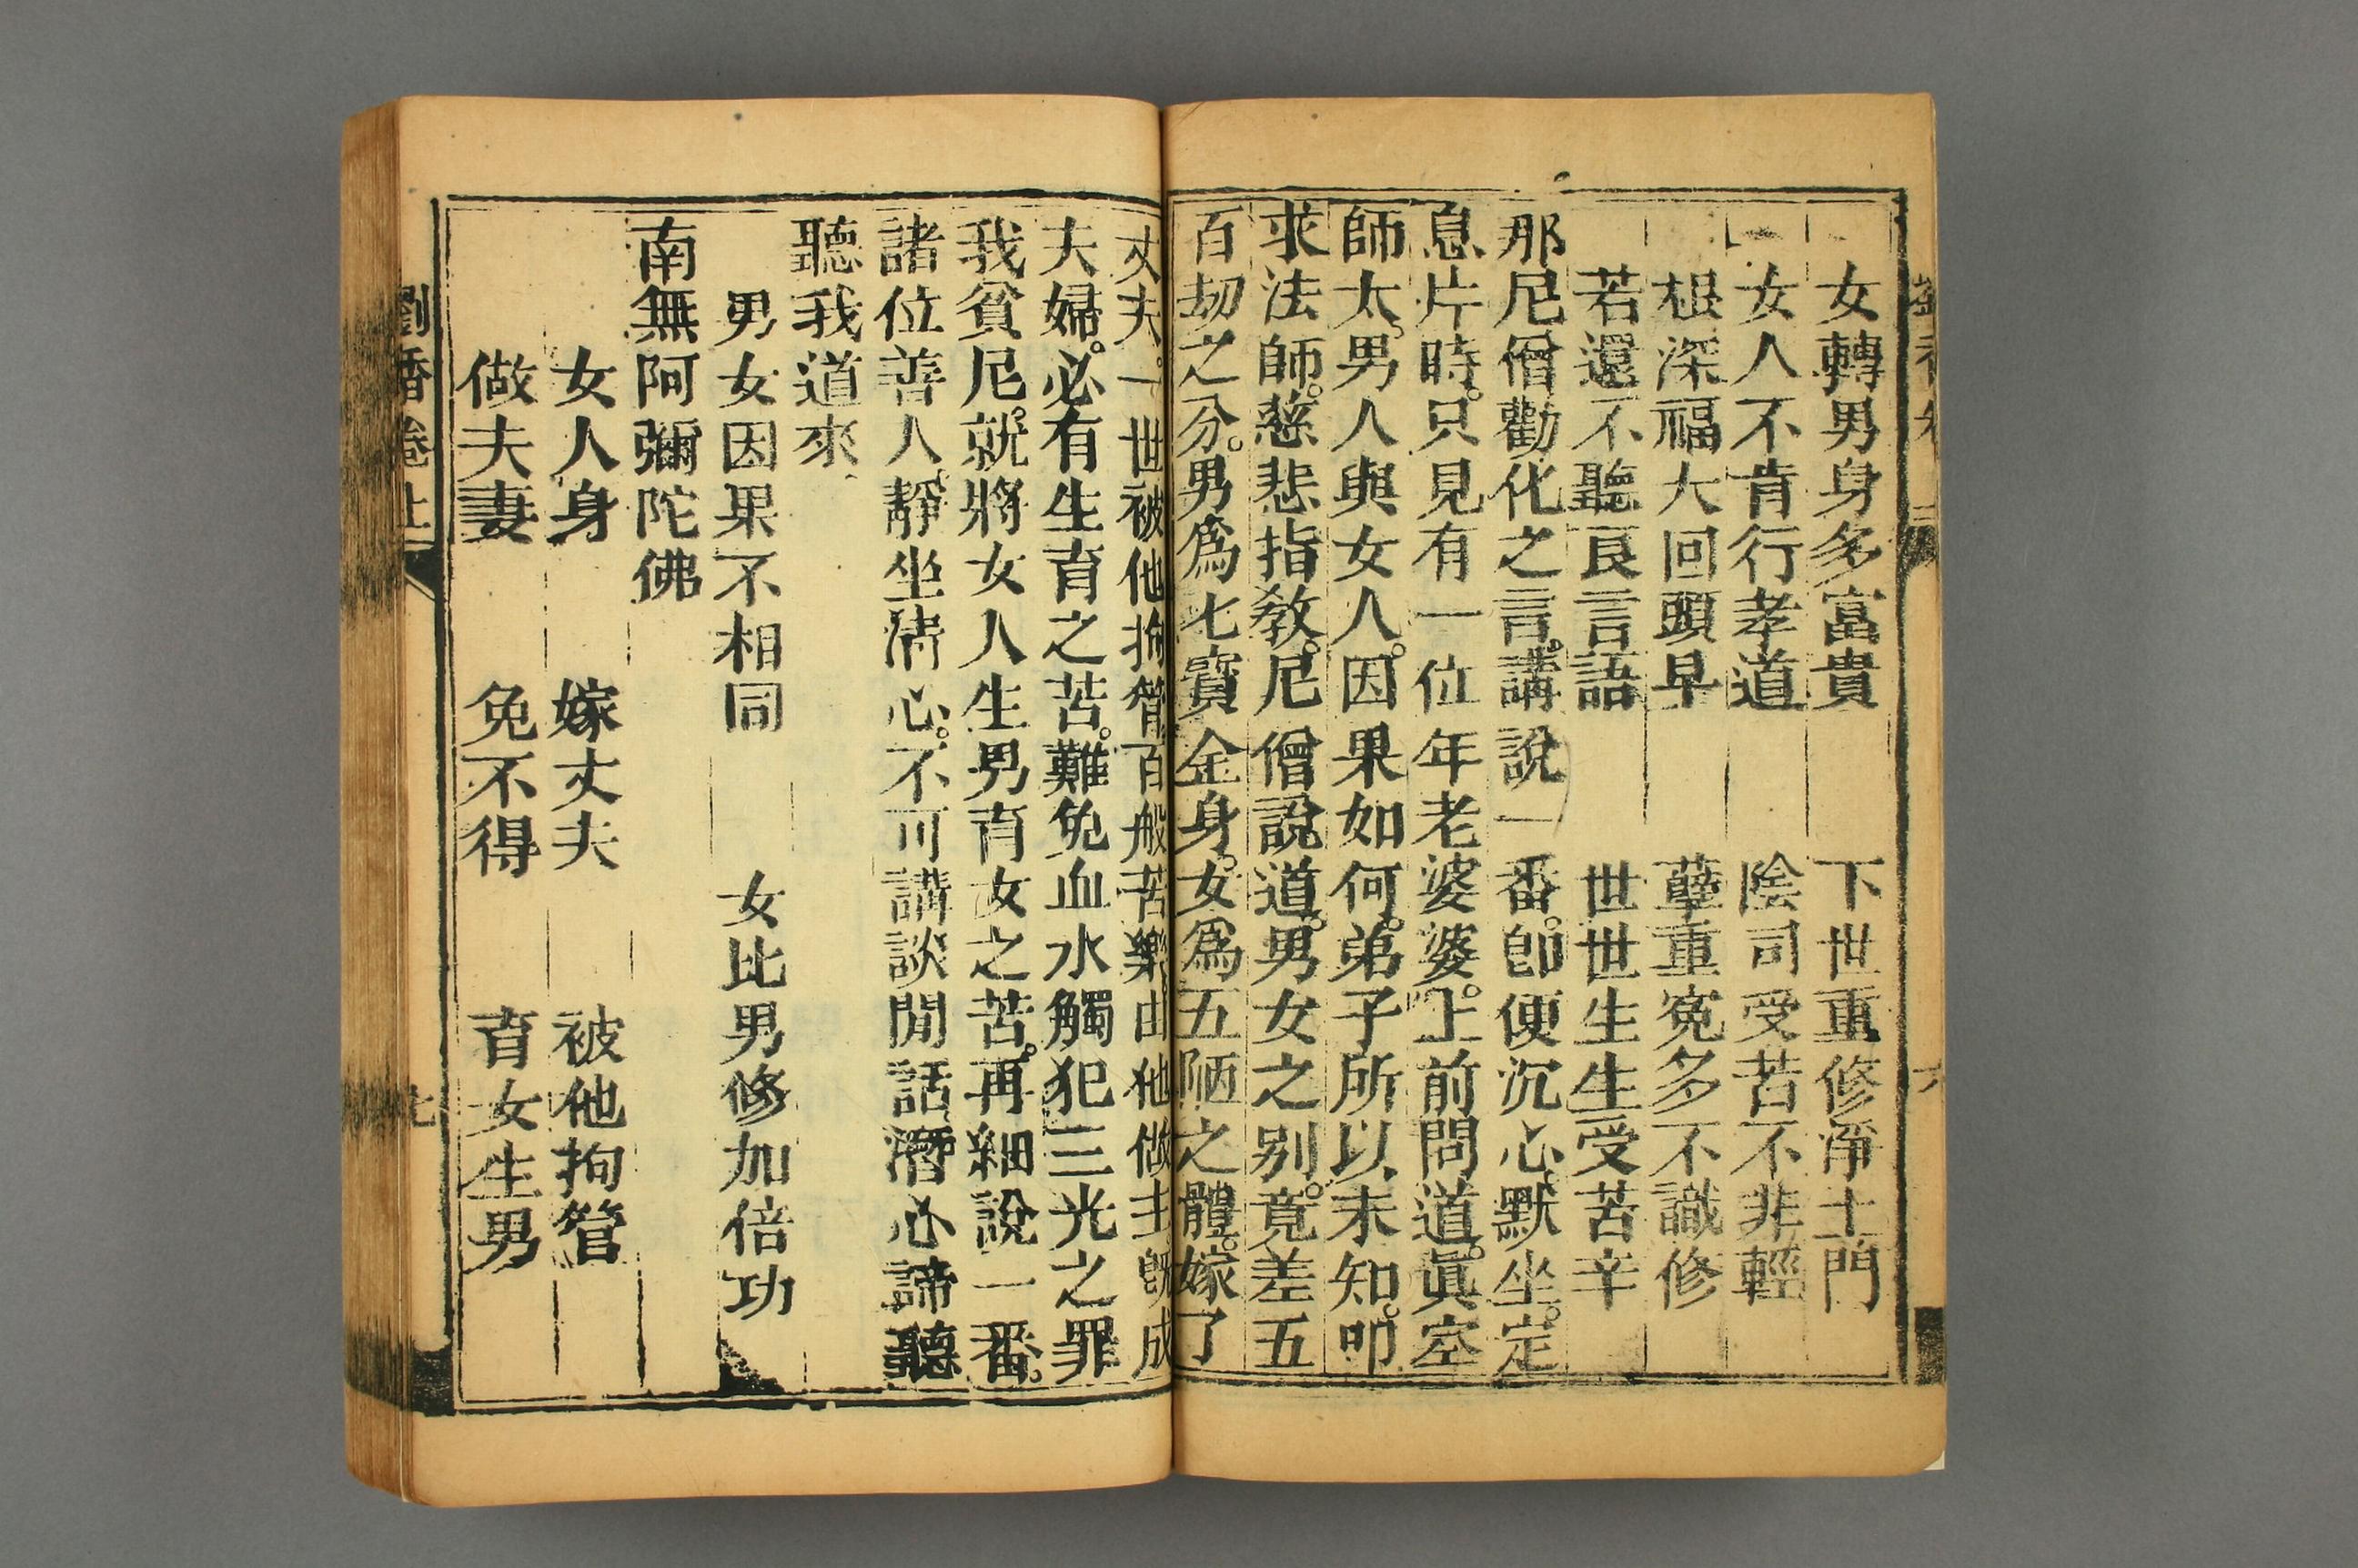 女轉男身多富貴　下世重修淨土門
女人不肯行孝道　陰司受苦不非輕
根深福大回頭早　孽重寃多不識修
若還不聽良言語　世世生生受苦辛
那尼僧勸化之言。講說一番。卽便沉心。默坐。定
息片時。只見有一位年老婆婆。上前問道。眞空
師太。男人與女人。因果如何。弟子所以未知。叩
求法師。慈悲指敎。尼僧說道。男女之别。竟差五
百劫之分。男爲七寶金身。女爲五陋之體。嫁了
丈夫。一世被他拘管百般苦樂由他做主旣成
夫婦。必有生育之苦。難免血水觸犯三光之罪
我貧尼。就將女人生男育女之苦。再細說一番。
諸位善人。靜坐淸心。不可講談閒話潛心諦聽
聽我道來
男女因果不相同　女比男修加倍功
南無阿彌陀佛
女人身　嫁丈夫　被他拘管
做夫妻　免不得　育女生男
劉香卷上　七